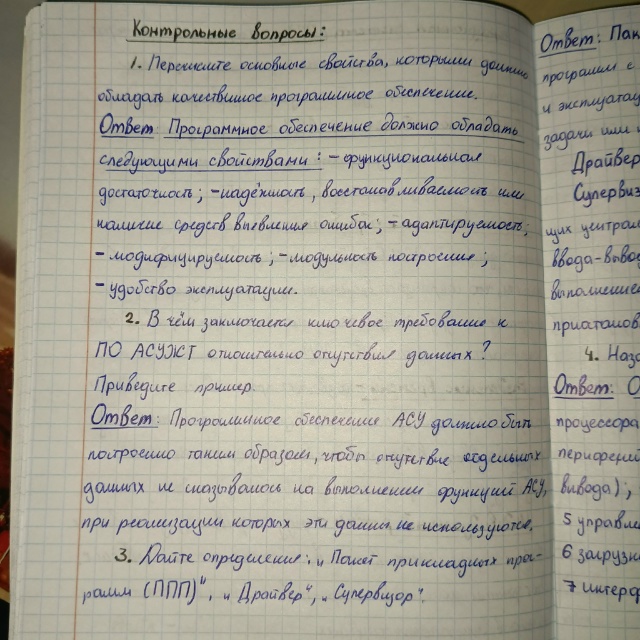 Контрольные вопросы:
1. Перечислите основные свойства, которыми должно
обладать качественное программное обеспечение.
Ответ: Программное обеспечение должно обладать
следующими свойствами: - функциональная
достаточность; - надёжность, восстанавливаемость или
наличие средств выявления ошибок; - адаптируемость;
- модифицируемость; - модульность построения;
- удобство эксплуатации.
2. В чём заключается ключевое требование к
ПО АСУЖТ относительно отсутствия данных?
Приведите пример.
Ответ: Программное обеспечение АСУ должно быть
построено таким образом, чтобы отсутствие отдельных
данных не сказывалось на выполнении функций АСУ,
при реализации которых эти данные не используются.
3. Дайте определения: „Пакет прикладных прог-
рамм (ППП)", „Драйвер", „Супервизор".
Ответ: Пак
программ с
и эксплуатац
задачи или
Драйвер
Супервиз
щих централ
ввода-вывод
выполнение
4. Наз
Ответ: О
процессора
перифери
вывода);
5 управле
6 загрузк
7 интерф